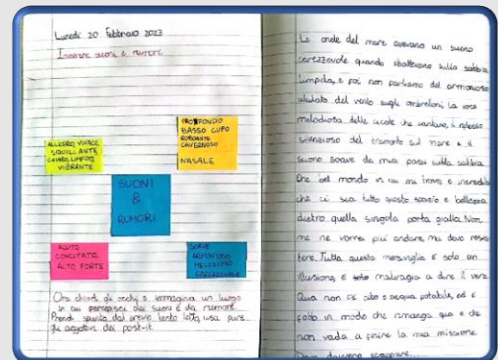 Lunedì 20 Febbraio 2023
suoni e rumori
ALLEGRO, VIVACE
SQUILLANTE
CHIARO, LIMPIDO
VIBRANTE
PROFONDO
BASSO CUPO
ROMBANTE
CAVERNOSO
NASALE
SUONI
&
RUMORI
ACUTO
CONCITATO
ALTO FORTE
SOAVE
ARMONIOSO
MELODIOSO
CAREZZEVOLE
Ora chiudi gli occhi e immagina un luogo
in cui percepisci dei suoni e da rumore.
Prendi spunto dal brano letto, usa pure
gli aggettivi dei post-it.
Le onde del mare avevano un suono
carezzevole quando sbattevano sulla sabbia
limpida, e poi non parliamo del armonioso
ululato del vento sugli ombreloni. La voce
melodiosa delle cicale che cantavano, il riflesso
silenzioso del tramonto sul mare e il
suono soave dei miei passi sulla sabbia.
Che bel mondo in cui mi trovo, è incredibile
che ci sia tutto questo spazio e bellezza
dietro quella singola porta gialla. Non
me ne vorrei più andare, ma devo resis
tere. Tutta questa meraviglia è solo un
illusione, è solo malvagia a dire il vero.
Qua non c'è cibo o acqua potabile, ed è
fatto in modo che rimanga qua e che
non vada a finire la mia missione.
Devo davvero scappare...